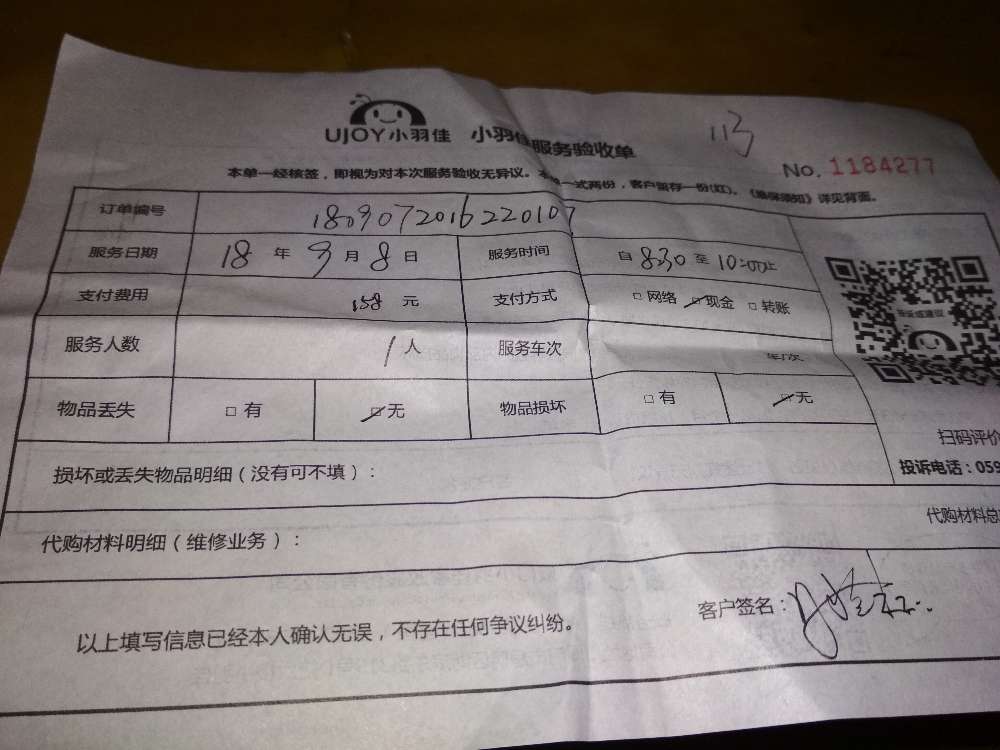 113
UJOY小羽佳 小羽佳服务验收单
No. 1184277
本单一经核签，即视为对本次服务验收无异议。本单一式两份，客户留存一份(红)。《 》详见背面。
订单编号 180907201622010
服务日期 18 年 9 月 8 日 服务时间 自 8:30 至 10:00止
支付费用 158 元 支付方式 □网络 ☑现金 □转账
服务人数 1 人 服务车次 车/次
物品丢失 □有 ☑无 物品损坏 □有 ☑无
扫码评价
投诉电话：059
损坏或丢失物品明细（没有可不填）：
代购材料总
代购材料明细（维修业务）：
以上填写信息已经本人确认无误，不存在任何争议纠纷。
客户签名：